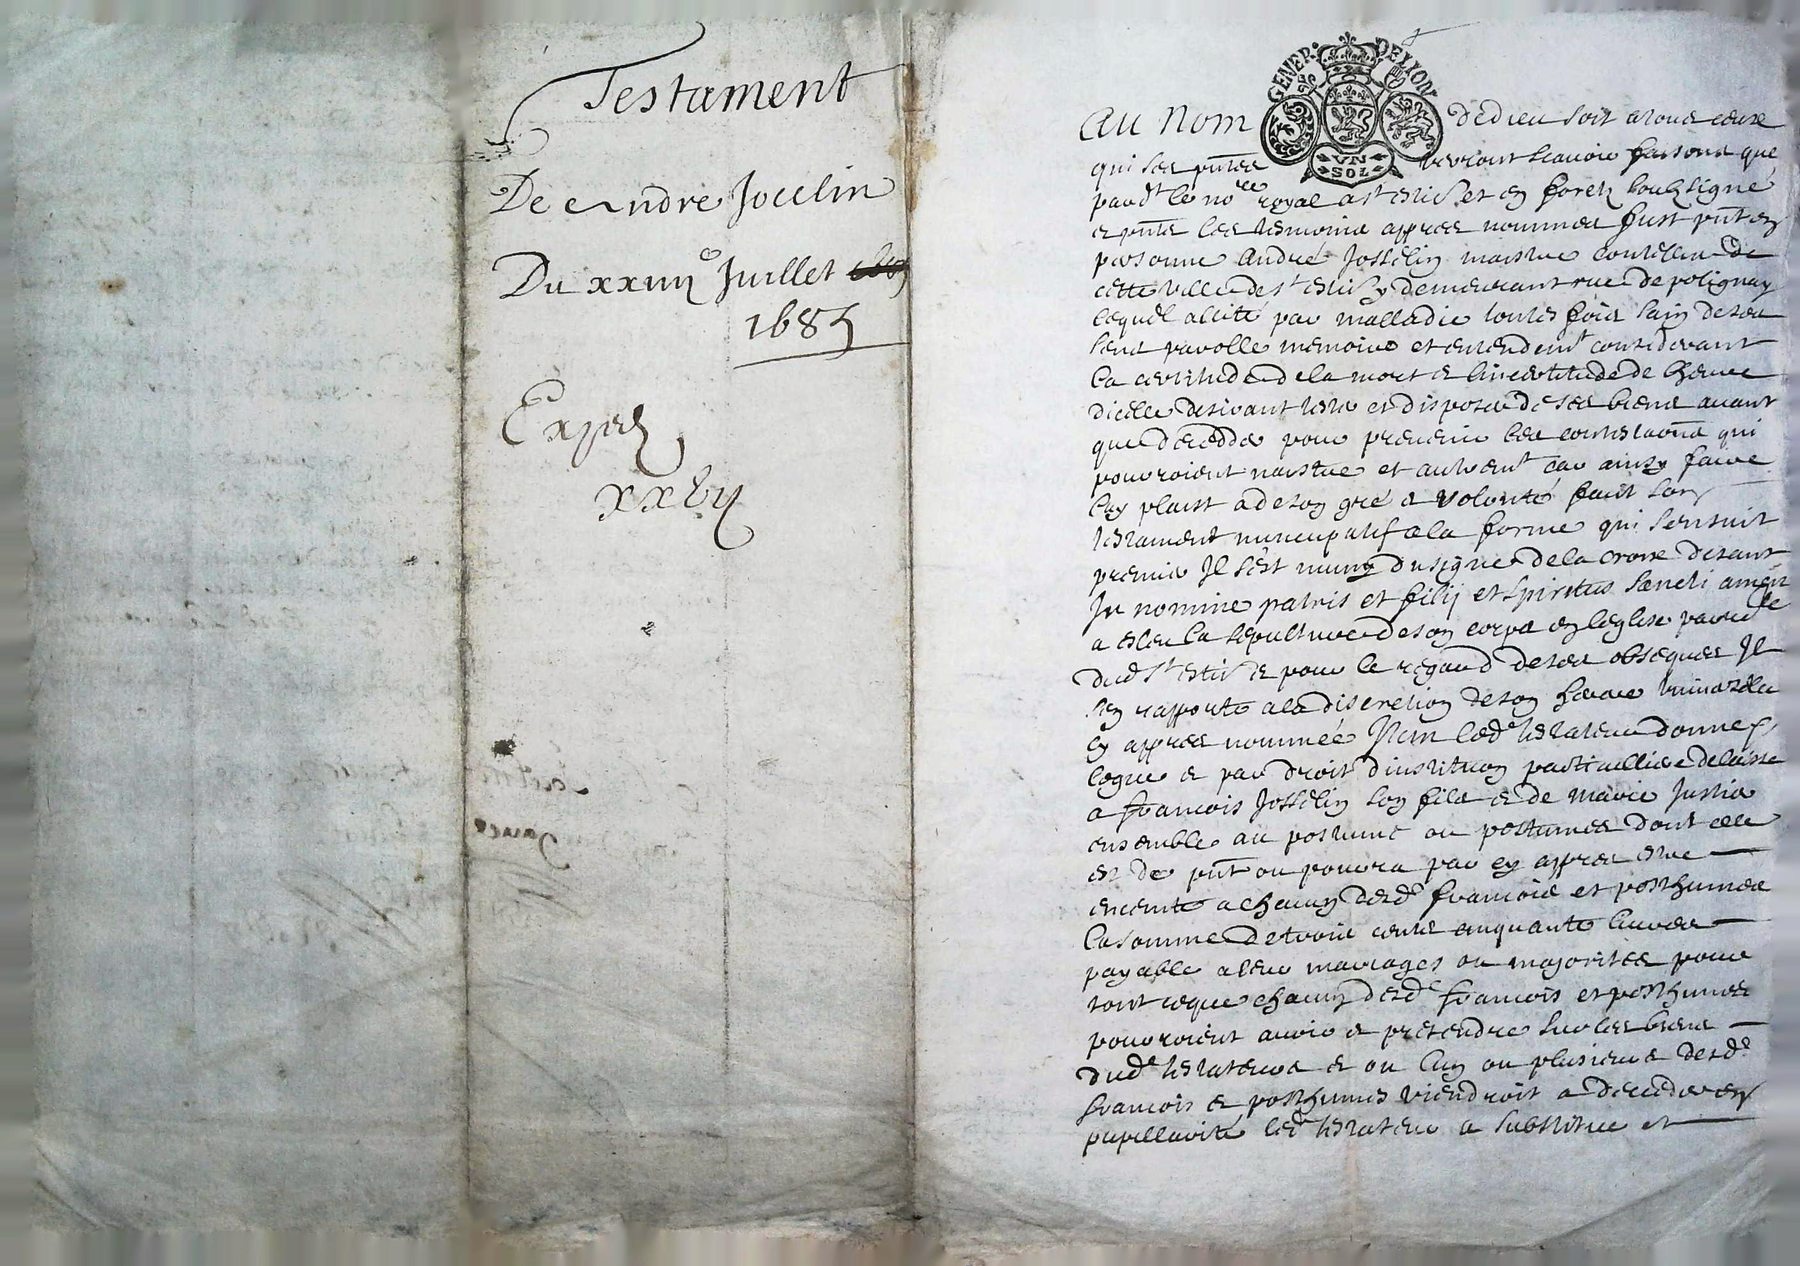 Testament
De Andre Jocelin
Du xxiiii^e Juillet
1685
Exped
xxvii
GENER. DE LION
UN
SOL
Au Nom de dieu soit a tous ceux
qui ces pñtes verront scavoir faisons que
pard^t le no^re royal a s^t estie^e et en forestz soubzsigné
et pñts les tesmoins appres nommes fust pñt en
personne André Josselin maistre coutellier de
cette ville de s^t estie^e y demeurant rue de polignay
lequel alité par malladie toutes fois sain de ses
sens parolle memoire et entendem^t considerant
la certitude de la mort et lincertitude de lheure
dicelle desirant tester et disposer de ses biens avant
que deceder pour prevenir les contestaons qui
pourroient naistre et autrem^t car ainsy faire
luy plaist a de son gré et volonté faict son
testament nuncupatif a la forme qui sensuit
premier Il sest muny du signe de la croix disant
In nomine patris et filij et spiritus sancti amen
a esleu la sepulture de son corps en leglise parro^lle
dud s^t estie^e et pour le regard de ses obseques Il
sen rapporte a la discretion de son heretiere universelle
cy appres nommée Item led^t testateur donne
legue et par droit dinstitution particulliere delaisse
a francois Josselin son fils et de marie Justier
ensemble au postume ou postumes dont elle
est de pñt ou pourra par cy appres estre
enceinte a chacun desd^s francois et posthumes
la somme de trois cents cinquante livres
payable a leur mariages ou majorités pour
tout ce que chacun desd^s francois et posthumes
pourroient avoir et pretendre sur les biens
dud^t testateur et ou lun ou plusieurs desd^s
francois et posthumes viendroit a deceder en
pupillarité led^t testateur a substitue et